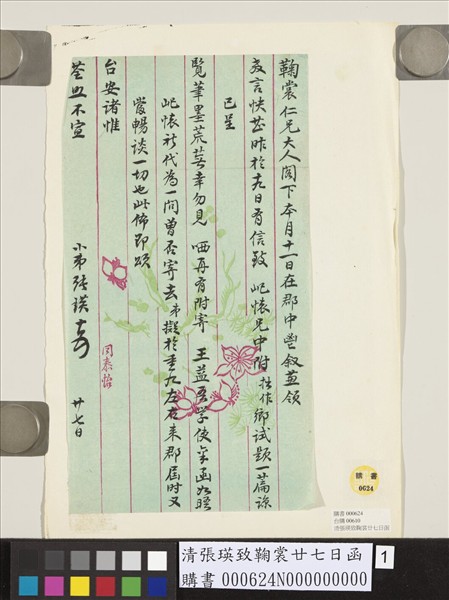 鞠裳仁兄大人閣下本月十一日在郡中邕叙藎領
教言快甚昨於十九日有信致 屺懷兄中附拙作鄉試題一篇諒
已呈
覽筆墨荒蕪幸勿見 哂再有附寄 王益吾學使 函如晤
屺懷祈代為一問曾否寄去弟擬於重九左右來郡屆時又
當暢談一切也此佈即頌
台安諸惟
荃照不宣
小弟張瑛
廿七日
同泰怡
購書
0624
購書 000624
台購 00610
清張瑛致鞠裳廿七日函
清張瑛致鞠裳廿七日函
購書 000624N000000000
1